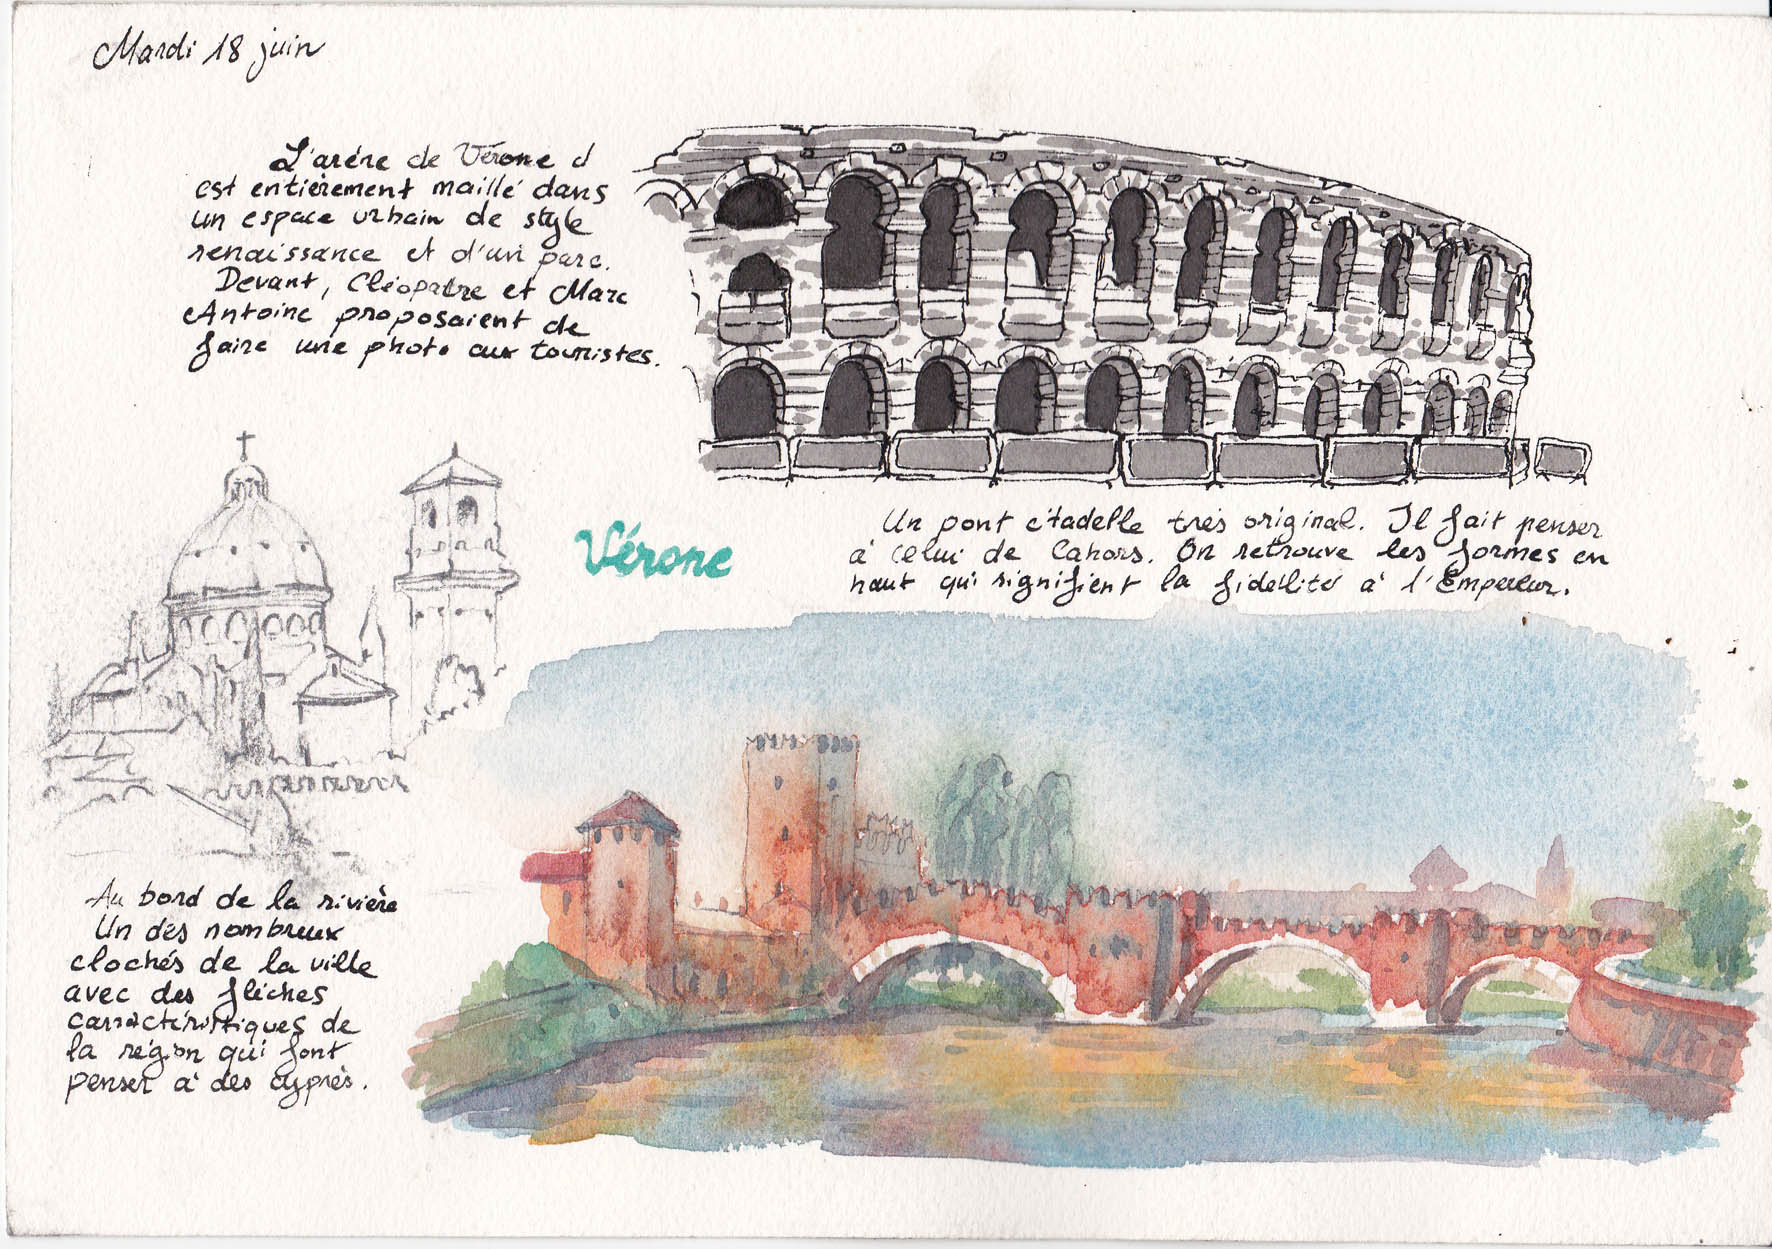 Mardi 18 juin
L'arène de Vérone d
est entièrement maillé dans
un espace urbain de style
renaissance et d'un parc.
Devant, Cléopatre et Marc
Antoine proposaient de
faire une photo aux touristes.
Vérone
Un pont citadelle très original. Il fait penser
à celui de Cahors. On retrouve les formes en
haut qui signifient la fidélité à l'Empereur.
Au bord de la rivière
Un des nombreux
clochés de la ville
avec des flèches
caractéristiques de
la région qui font
penser à des cyprès.